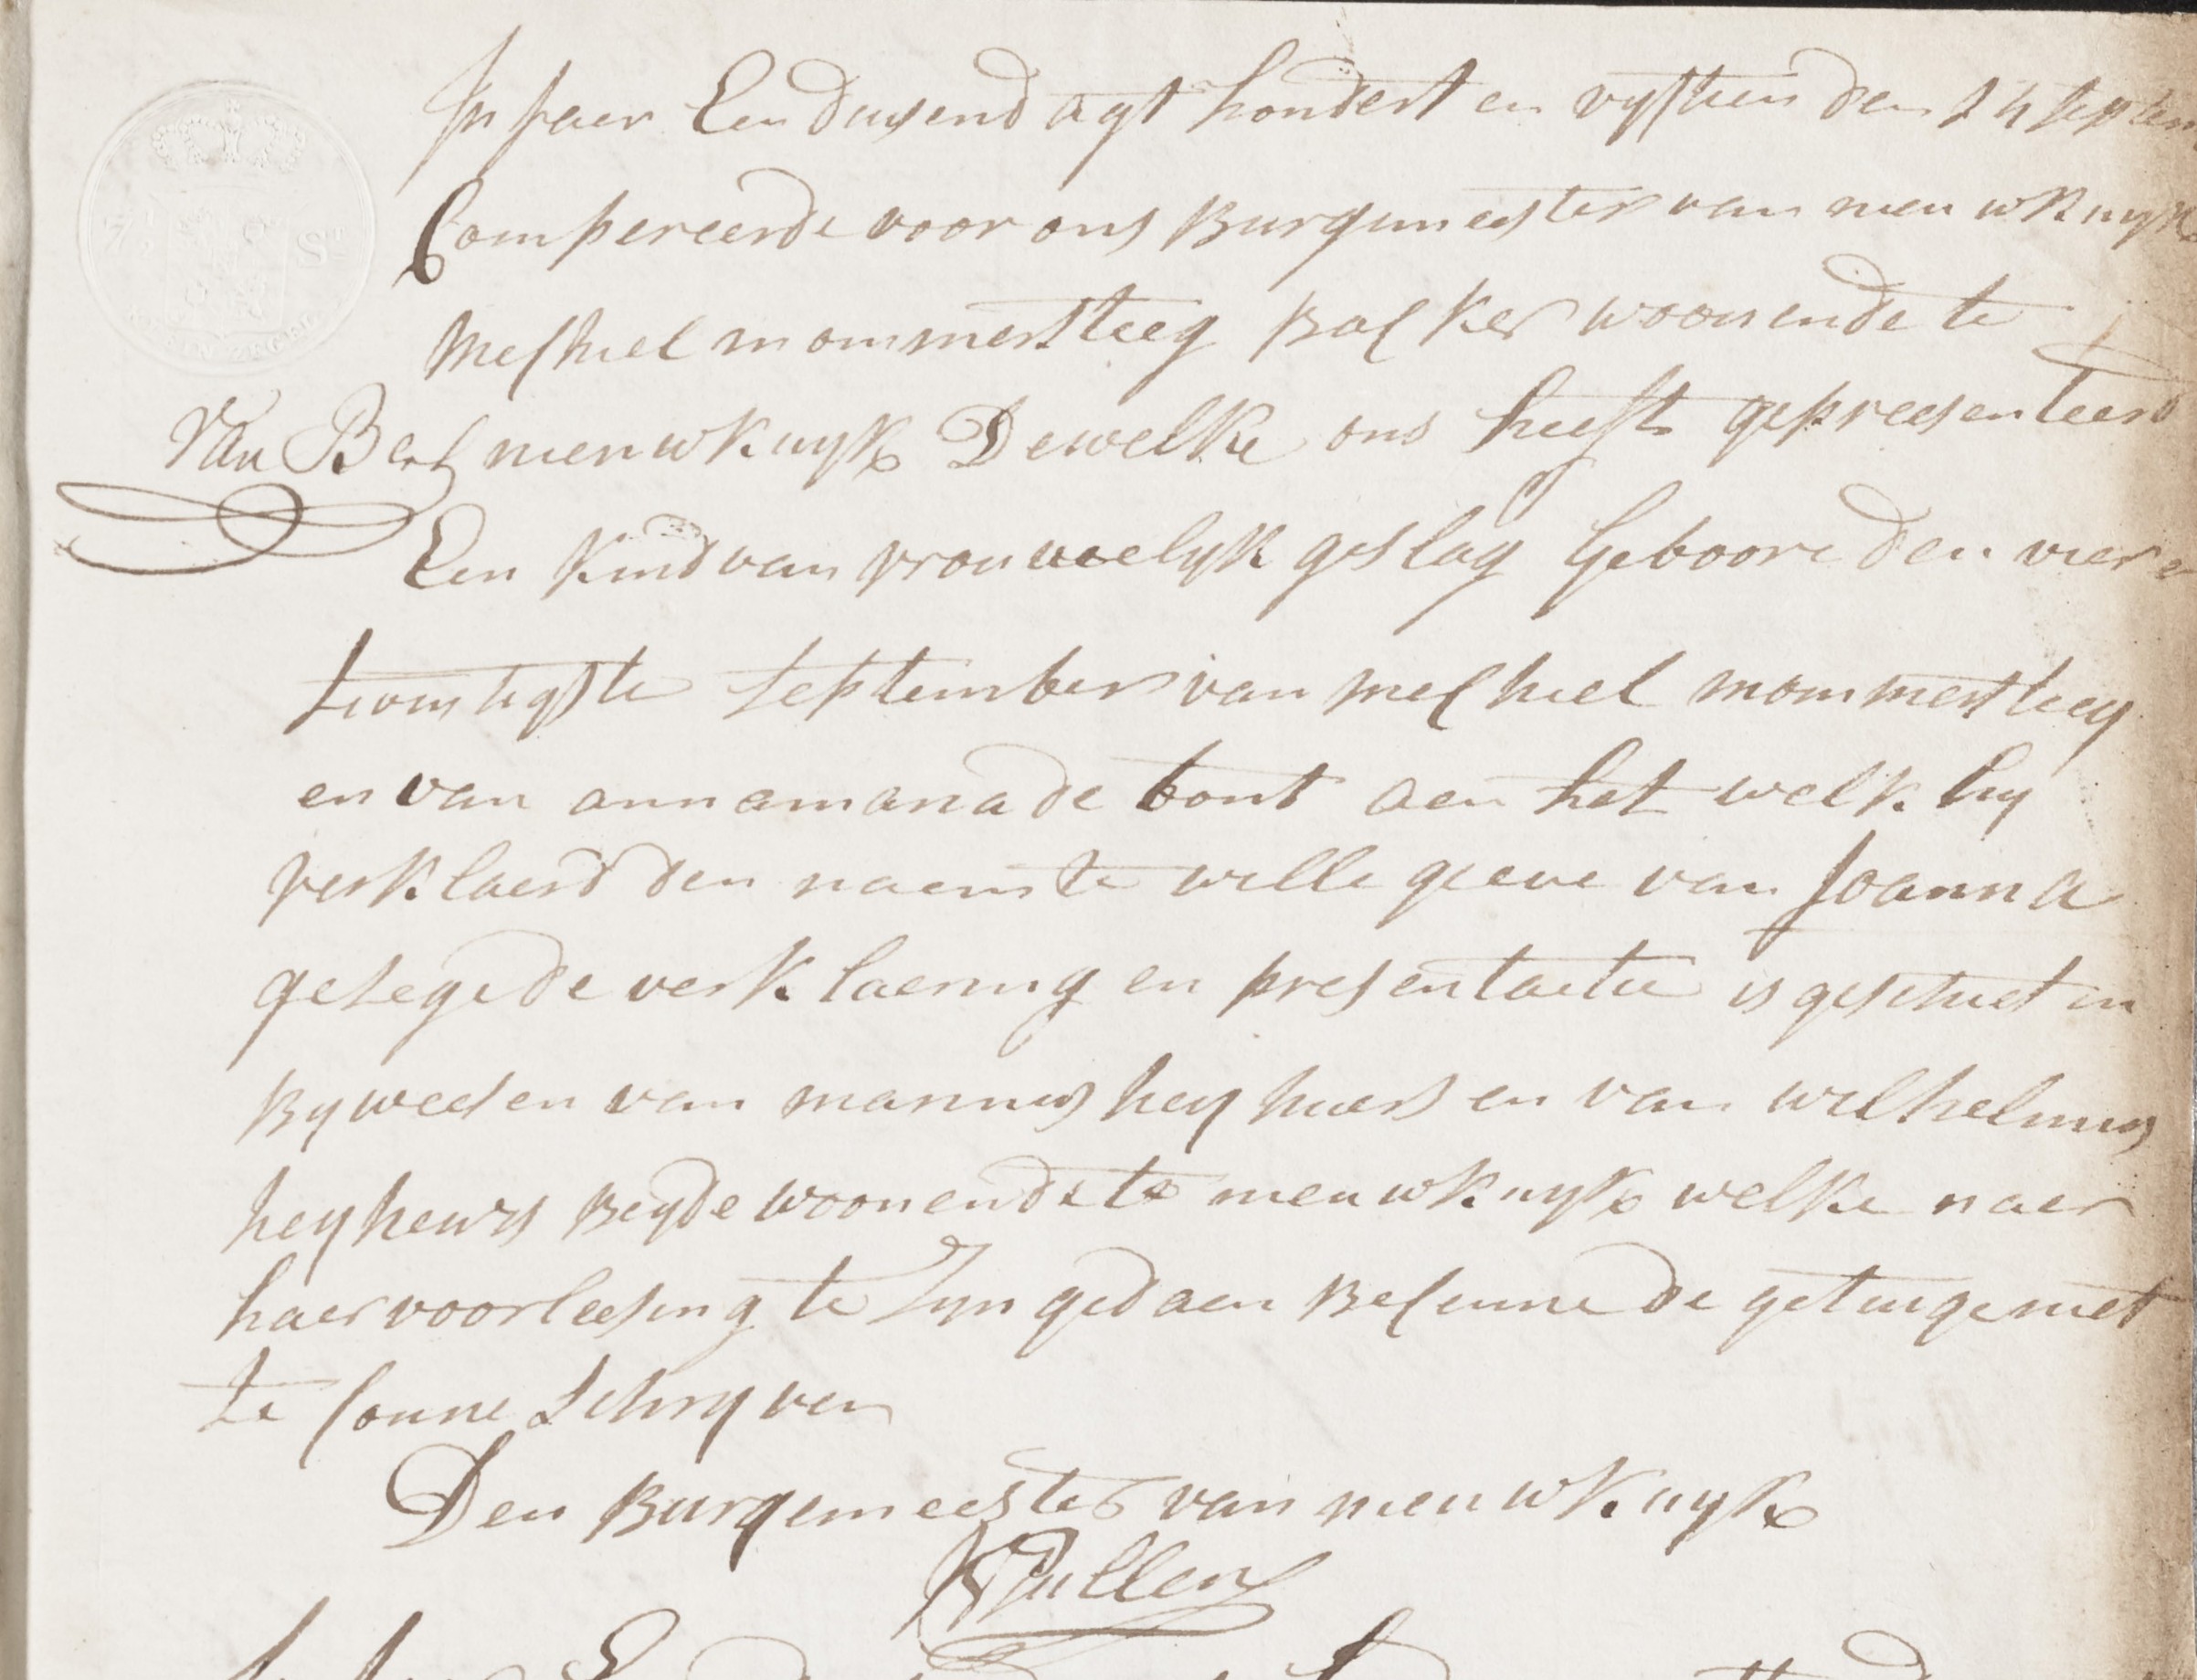 In Jaer Een duysend agt hondert en vyftien den 24 septem
Compereerde voor ons Burgemeester van nieuwkuyk
Mechiel mommersteeg Backer woonende te
Van Bert nieuwkuyk Dewelke ons heeft gepreesenteert
Een Kind van vrouwelyk geslag geboore den vier e
twintigste september van mechiel mommersteeg
en van anna maria de bont aen het welk hy
verklaerd den naem te wille geeve van Joanna
gesegde verklaering en presentatie is geschiet in
Byweesen van marinus heyhuers en van wilhelmus
heyheurs Beyde woonende te nieuwkuyk welke naer
haer voorleesing te Zyn gedaen Bekenne de getuige niet
te conne schryven
Den Burgemeester van nieuwkuyk